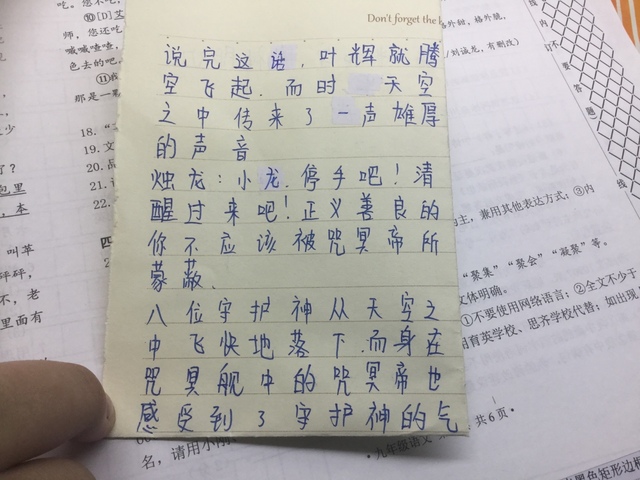 Don't forget the
说完这话,叶辉就腾
空飞起.而时 天空
之中传来了一声雄厚
的声音
烛龙:小龙.停手吧!清
醒过来吧!正义善良的
你不应该被咒冥帝所
蒙蔽.
八位守护神从天空之
中飞快地落下.而身在
咒冥舰中的咒冥帝也
感受到了守护神的气
吃。您不吃,
⑩[D]艾
师,您还吃
喊喊喳喳,
色去的吧。
那是一
18.
19. 文
20. 品
22.
四
包里
,本
叫草
砰砰,
不,老
里面有
名,请用小
外甜,格外脆。
/刘诚龙,有删改)
内
要
答
题
主,兼用其他表达方式;③内
"聚集" "聚会" "凝聚"等。
文体明确。
①不要使用网络语言;②全文不少于
用育英学校、思齐学校代替;如出现
九年级语文
共6页
黑色矩形边框